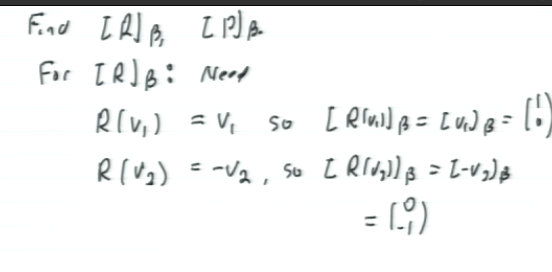 Find [R]β, [P]β.
For [R]β: Need
R(v₁) = v₁ so [R(v₁)]β = [v₁]β = (1 0)
R(v₂) = -v₂, so [R(v₂)]β = [-v₂]β
= (0 -1)